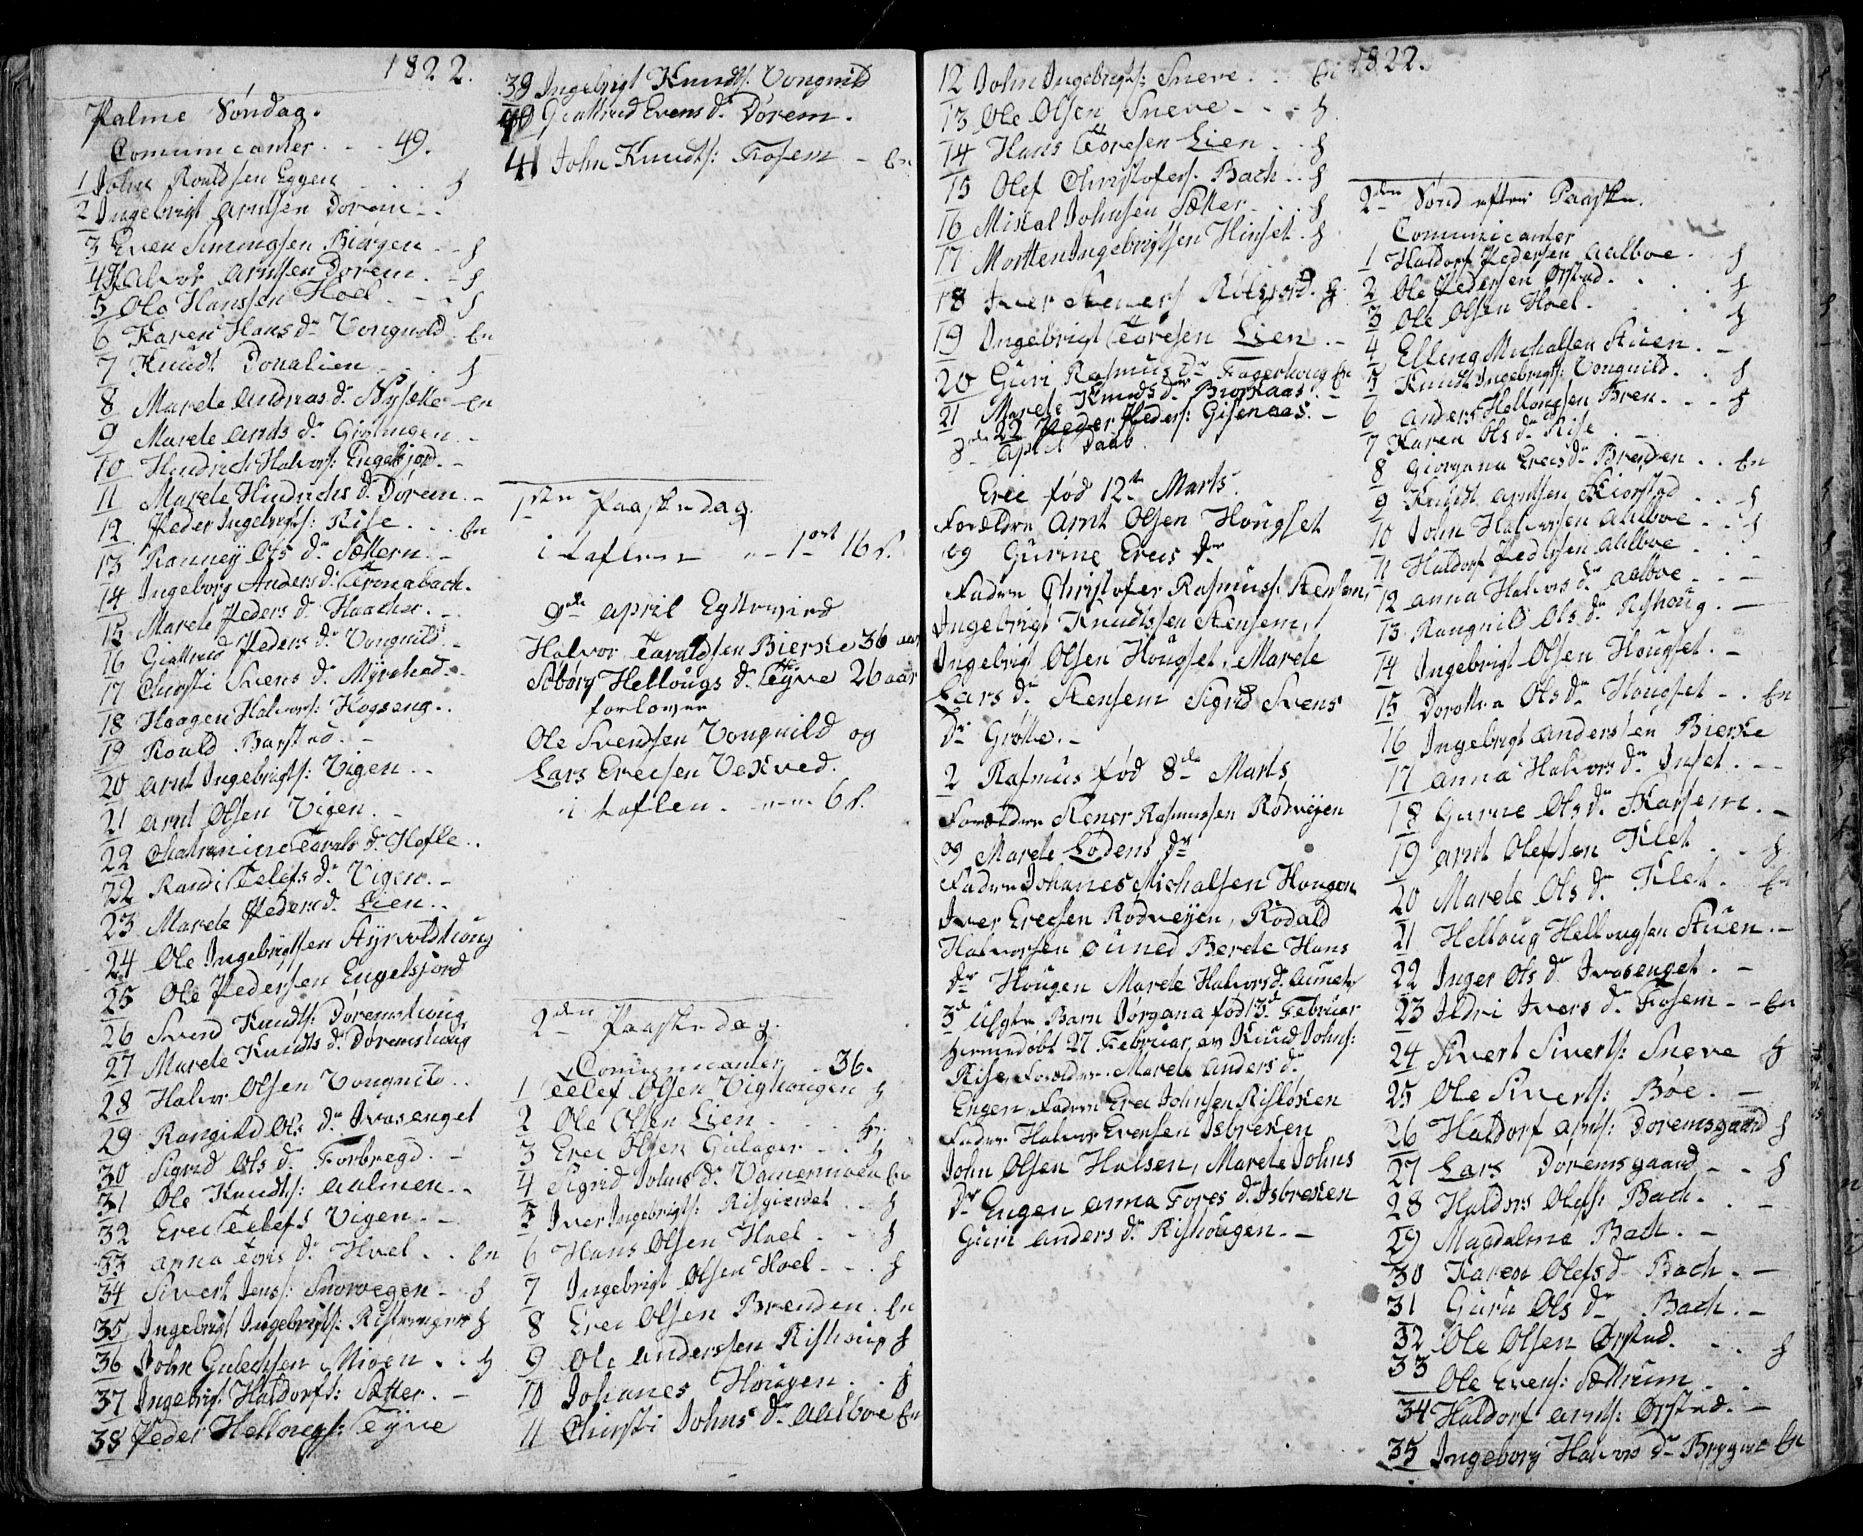 1822.
Palme Søndag.
Comunicanter. - - 49.
1 John Roaldsen Eggen . . . . h
2 Ingebrigt Arntsen Dørem - .
3 Even Simongsen Biørgen - - h
4 Halvor Arntsen Dorem. - h
5 Ole Hanssen Hoel - - - h
6 Karen Hans Dr Vongnild . En
7 Knudt Donalien - - . . h
8 Marete Andreas Dr Nysette - En
9 Marete Arnts Dr
10 Hindrich Halvors: Engelsjord. -
11 Marete Hindrichs Dr Dørem. -
12 Peder Ingebrigts: Rise . . . En
13 Ranney Ols Dr Sættern. -
14 Ingeborg Anders Dr Tronabach.
15 Marete Peders Dr Haacker. -
16 Giertrud Peders Dr Vongnild -
17 Christi Svens Dr
18 Haagen Halvors: Hogseng. .
19 Roald Barstad. -
20 Arnt Ingebrigts: Vigen. . .
21 Arnt Olsen Vigen. -
22 Tarals Dr Hofle . .
22 Randi Eelefs Dr Vigen. . -
23 Marete Peders Dr Lien. .
24 Ole Ingebrigtsen
25 Ole Pedersen Engelsjord
26 Svend Knudts: Doremshoug
27 Marete Knudts Dr Doremshoug
28 Halvor Olsen Vongnild . .
29 Rangnild Ols Dr Ivasenget
30 Sigrid Ols Dr Forbregd. -
31 Ole Knudts: Aalmen. .
32 Erec Eelefs Vigen. - -
33 Anna Tores Dr Hoel . . En
34 Sivert Jens: Snovegen - h
35 Ingebrigt Ingebrigts: h
36 John Gulechsen Mioen . . h
37 Ingebrigt Haldorfs: Sætter. -
38 Peder Hellougs: Tyve
39 Ingebrigt Knudts: Vongnild
40 Giertrud Evens Dr Dørem.
41 John Knudts: Frosem - En
1ste Paaskedag.
i taflene . - - 1 ort 16 s.
9de April Egtevied
Halvor Taraldsen Bierke 36 aar
Siborg Hellougs Dr Tyve 26 aar
forlover
Ole Svendsen Vongnild og
Lars Erecsen Vekved.
i taflen. - - - 6 s.
2den Paaskedag.
Comunicanter - 36.
1 Eelef Olsen Vighougen h
2 Ole Olsen Lien - - - - h.
3 Erec Olsen Gulager - - h
4 Sigrid Johns Dr En
5 Iver Ingebrigts: . . h
6 Hans Olsen Hoel . - h
7 Ingebrigt Olsen Hoel - - - h
8 Erec Olsen Brenden . En
9 Ole Anderssen Rishoug h
10 Johanes Hougen . . h
11 Christi Johns Dr Aalboe En
1822.
12 John Ingebrigts: Sneve . . En
13 Ole Olsen Sneve - - - h
14 Hans Toresen Lien . . h
15 Olef Christofers. Bach . . h
16 Mickal Johnsen Sætter . . . h
17 Morten Ingebrigtsen Hinset . h
18 Iver h
19 Ingebrigt Toresen Lien. -
20 Guri Rasmus Dr Fagerhoug En
21 Marete Knuds Dr Biorkaas. -
22 Peder Peders: Gisenaas. -
8de April Daab.
Erec fød 12te Marts.
Forældre Arnt Olsen Hougset
og Gurine Erecs Dr
Fadre Christofer Rasmuss: Stensem,
Ingebrigt Knudtssen Stensem,
Ingebrigt Olsen Hougset, Marete
Lars Dr Stensem Sigrid Svens
Dr Grøtte. -
2 Rasmus fød 8de Marts
Forældre Stener Rasmussen Rodveyen
og Marete Lodens Dr
Fadre Johanes Michalsen Hougen
Iver Erecsen Rodveyen, Roald
Halvorsen Berete Hans
Dr Hougen Marete Halvors Dr
3d Uægte Barn Jørgana fød 13d Februar
hiemedøbt 27 Februar, av Knud Johns:
Rise, Forældre Marete Anders Dr
Engen, Fadren Erec Johnsen Risløken
Fadre Halvor Evensen Isbreken
John Olsen Halsen, Marete Johns
Dr Engen Anna Fores Dr Isbreken
Guri Anders Dr Rishougen. -
2den Sønd efter Paaske.
Comunicanter
1 Haldorf Pedersen Aalboe . . h
2 Ole Pedersen Ørstad. . . . h
3 Ole Olsen Hoel. . . . h
4 Elling Michalsen Stuen. -
5 Knudt Ingebrigts: Vongnild. . . h
6 Anders Hellougsen Bren. . . . h
7 Karen Ols Dr Rise
8 Giorgana Erecs Dr Brenden . . En
9 Knudt Arntsen Kiorstad . . h
10 John Halvorsen Aalboe . . h
11 Haldorf Pedersen Aalboe . . -
12 Anna Halvors Dr Aalboe - - -
13 Rangnild Ols Dr Rishoug. -
14 Ingebrigt Olsen Hougset. -
15 Dorothea Ols Dr Hougset - . En
16 Ingebrigt Anderssen Bierke
17 Anna Halvors Dr Inset. - -
18 Gurine Ols Dr . -
19 Arnt Olefsen Klet . . h
20 Marete Ols Dr Klet . En
21 Helloug Hellougsen Stuen . -
22 Inger Ols Dr Ivasenget. -
23 Ildri Ivers Dr Frosem - - En
24 Sivert Siverts: Sneve h
25 Ole Siverts: Bøe. -
26 Haldorf Arnts: Doremsgaard h
27 Lars Doremsgaard - - h
28 Haldors Olefs: Bach. . -
29 Magdalena Bach. -
30 Karen Olefs Dr Bach. -
31 Guru Ols Dr Bach. -
32 Ole Olsen Ørstad. . . h
33 Ole Evens: Sættrum . .
34 Haldorf Arnts: Ørstad. -
35 Ingeborg Halvors Dr En